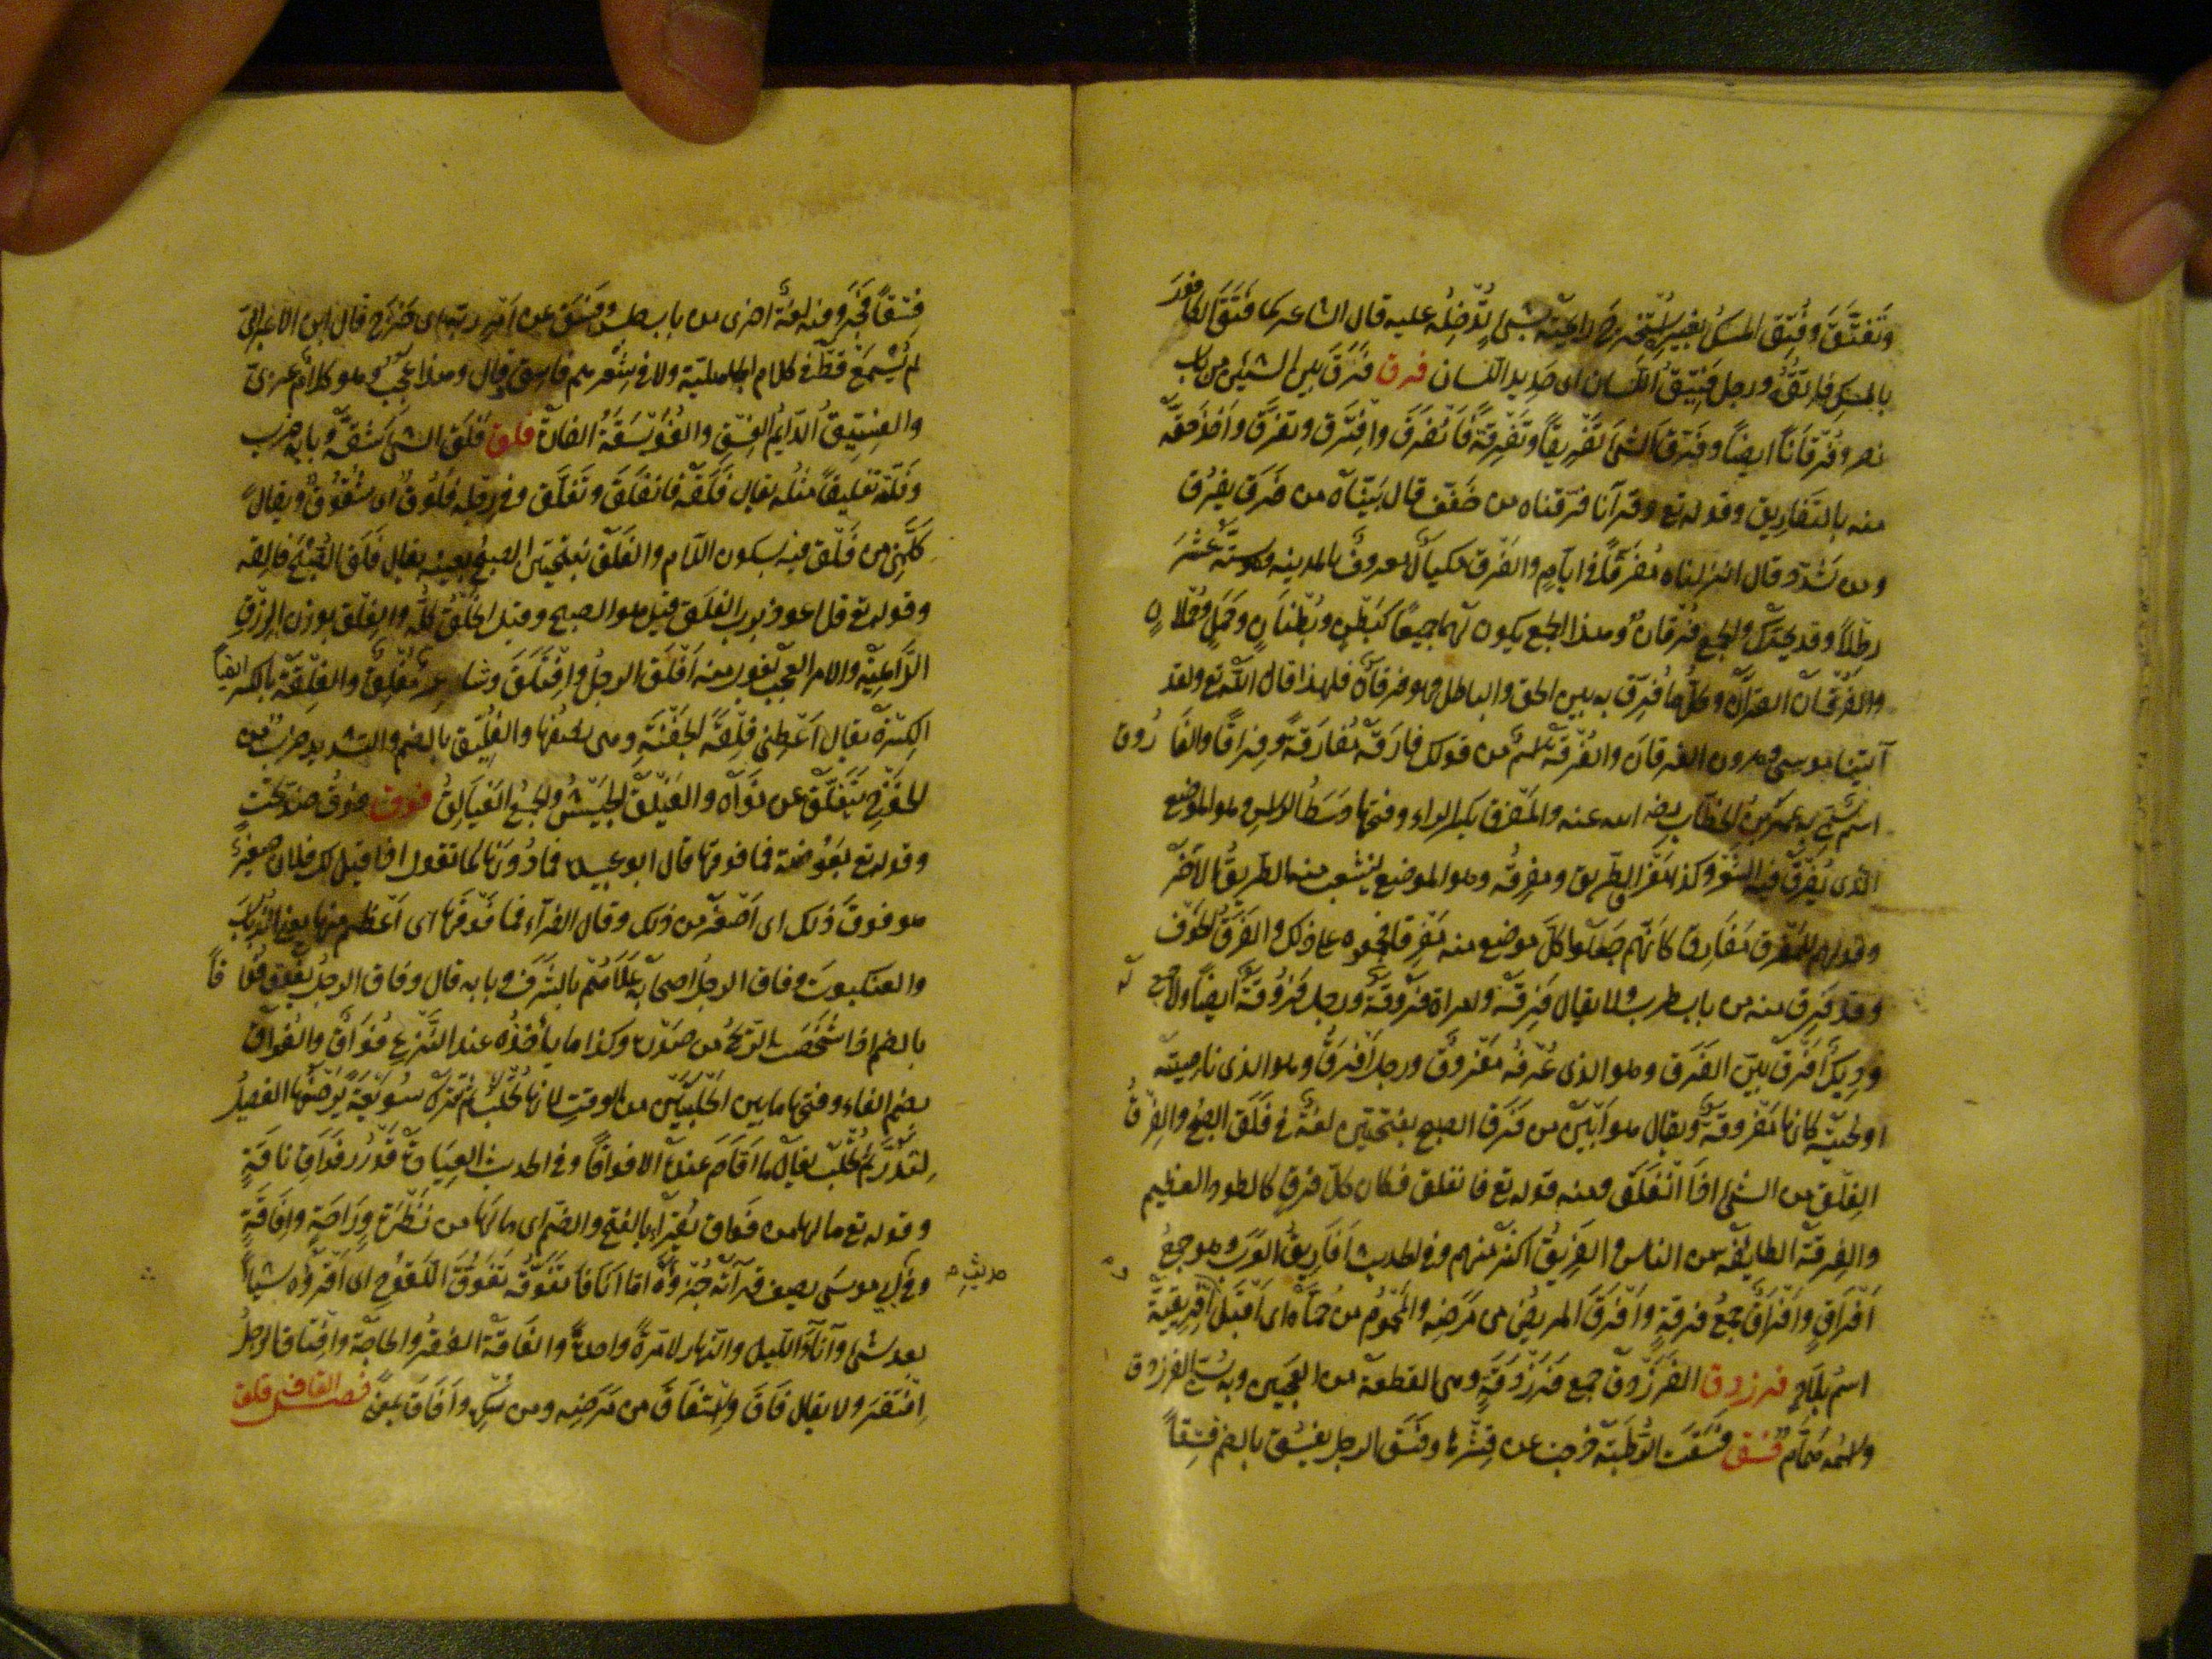 وتفتق وفتق المسك بغيره استخرج رايحته بشئ تدخله عليه قال الشاعر كما فتق الكافور
بالمسك فاتقه ورجل فتيق اللسان اى حديد اللسان فرق فرق بين الشيئين من باب
نصر وفرقانا ايضا وفرق الشئ تفريقا وتفرقة فانفرق وافترق وتفرق واخذ حقه
منه بالتفاريق وقوله تع وقرآنا فرقناه من خفف قال بيناه من فرق يفرق
ومن شدد قال انزلناه مفرقا فى ايام والفرق مكيال معروف بالمدينه وهو ستة عشر
رطلا وقد يحرك والجمع فرقان وهذا الجمع يكون لهما جميعا كبطن وبطنان وحمل وحملان
والفرقان القرآن وكل ما فرق به بين الحق والباطل فهو فرقان فلهذا قال الله تع ولقد
آتينا موسى وهرون الفرقان والفرقة اسم من قولك فارقه مفارقة وفراقا والفاروق
اسم سمى به عمر بن الخطاب رضى الله عنه والمفرق بكسر الراء وفتحها وسط الراس وهو الموضع
الذى يفرق فيه الشعر وكذا مفرق الطريق ومفرقه وهو الموضع يتشعب منه الطريق الآخر
وقولهم للمفرق مفارق كانهم جعلوا كل موضع منه مفرقا فجمعوه على ذلك والفرق الخوف
وقد فرق منه من باب طرب ولا يقال فرقه وامراة فروقة ورجل فروقة ايضا ولا جمع له
وديك افرق بين الفرق وهو الذى عرفه مفروق ورجل افرق وهو الذى ناصيته
او لحيته كانها مفروقة ويقال هو ابين من فرق الصبح بفتحتين لغة فى فلق الصبح والفرق
الفلق من الشئ اذا انفلق ومنه قوله تع فانفلق فكان كل فرق كالطود العظيم
والفرقة الطايفه من الناس والفريق اكثر منهم وفى الحديث افاريق العرب وهو جمع
افراق وافراق جمع فرقة وافرق المريض من مرضه والمحموم من حماه اى اقبل وافريقية
اسم بلاد فرزدق الفرزدق جمع فرزدقة وهى القطعة من العجين وبه سمى الفرزدق
واسمه همام فسق فسقت الرطبة خرجت عن قشرها وفسق الرجل يفسق بالضم فسقا
فسقا فجر وفيه لغة اخرى من باب جلس وفسق عن امر ربه اى خرج قال ابن الاعرابى
لم يسمع قط فى كلام الجاهلية ولا فى شعرهم فاسق قال وهذا عجب وهو كلام عربى
والفسيق الدايم الفسق والفويسقة الفارة فلق فلق الشئ شقه وبابه ضرب
وفلقه تفليقا مثله يقال فلقه فانفلق وتفلق وفى رجله فلوق اى شقوق ويقال
كلمنى من فلق فيه بسكون اللام والفلق بفتحتين الصبح بعينه يقال فلق الصبح فالقه
وقوله تع قل اعوذ برب الفلق قيل هو الصبح وقيل الخلق كله والفلق بوزن الرزق
الداهية والامر العجب تقول منه افلق الرجل وافتلق وشاعر مفلق والفلقة بالكسر ايضا
الكسرة يقال اعطنى فلقة الجفنة وهى نصفها والفليق بالضم والتشديد ضرب من
الخوخ يتفلق عن نواه والفيلق الجيش والجمع الفيالق فوق فوق ضد تحت
وقوله تع بعوضة فما فوقها قال ابو عبيدة فما دونها كما تقول اذا قيل لك فلان صغير
هو فوق ذلك اى اصغر من ذلك وقال الفرآء فما فوقها اى اعظم منها يعنى الذباب
والعنكبوت وفاق الرجل اصحابه علاهم بالشرف وبابه قال وفاق الرجل يفوق فواقا
بالضم اذا شخصت الريح من صدره وكذا ما ياخذه عند النزع فواق والفواق
بضم الفاء وفتحها ما بين الحلبتين من الوقت لانها تحلب ثم تترك سويعة يرضعها الفصيل
لتدر ثم تحلب يقال ما اقام عنده الا فواقا وفى الحديث العيادة قدر فواق ناقة
وقوله تع ما لها من فواق يقرآء بالفتح والضم اى ما لها من نظرة وراحة وافاقة
وفى ابى موسى يصف قرآنه جزوه اما انا فاتفوقه تفوق اللقوح اى اقرؤه شيئا
حديث م
بعد شئ وآناء الليل والنهار لا مرة واحدة والفاقة الفقر والحاجة وافتاق الرجل
افتقر ولا يقال فاق واستفاق من مرضه ومن سكره وافاق بمعنى فصل القاف قلق